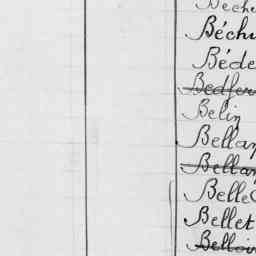 Bech
Béchu
Béde
Bedfer
Belin
Bellan
Bellan
Belle
Bellet
Belloi